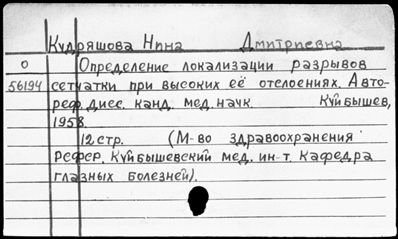 Кудряшова Нина Дмитриевна
О Определение локализации разрывов
56194 сетчатки при высоких её отслоениях. Авто-
реф. дисс. канд. мед. наук. Куйбышев,
1958.
12 стр. (М-во здравоохранения
РСФСР. Куйбышевский мед. ин-т. Кафедра
глазных болезней).